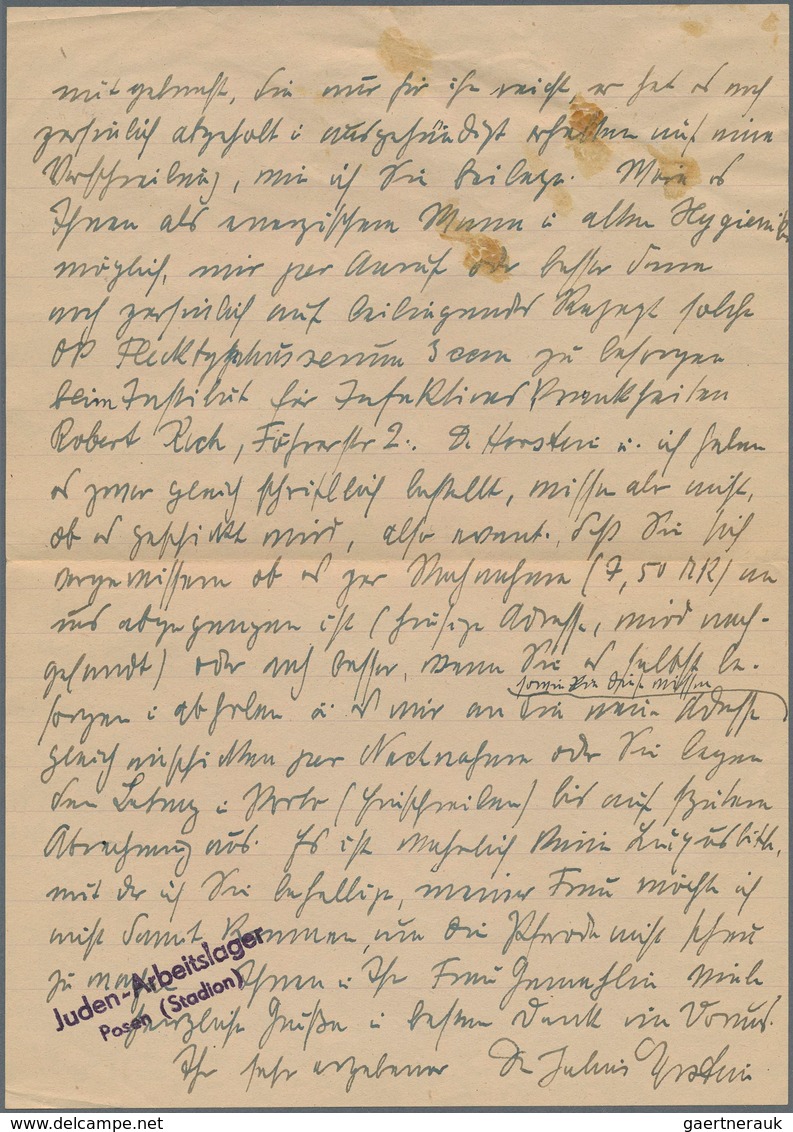 mitgebracht, die nur für ihn reicht, er hat es noch
persönlich abgeholt u ausgehändigt erhalten auf eine
Verschreibung, wie ich Sie beilege. Wäre es
Ihnen als energischem Mann u altem Hygieniker
möglich, mir per Anruf oder besser dann
noch persönlich auf beiliegendes Rezept solche
OP Flecktyphusserum 3 ccm zu besorgen
beim Institut für Infektionskrankheiten
Robert Koch, Föhrerstr 2. D. u. ich haben
es zwar gleich schriftlich bestellt, wissen aber nicht,
ob es geschickt wird, also event., daß Sie sich
vergewissern ob es per Nachnahme (7,50 RM) an
uns abgegangen ist (hiesige Adresse, wird nach-
gesandt) oder noch besser, wenn Sie es selbst be-
sowie Sie diese wissen
sorgen u abholen u. es mir an die neue Adresse
gleich zuschicken per Nachnahme oder Sie legen
den Betrag u Porto (Einschreiben) bis auf spätere
Abrechnung aus. Es ist wahrlich keine Luxusbitte,
mit der ich Sie behellige, meiner Frau möchte ich
nicht damit kommen, um die Pferde nicht scheu
zu machen. Ihnen u Ihr Frau Gemahlin viele
herzliche Grüße u besten Dank im Voraus.
Ihr sehr ergebener Dr Julius
Juden-Arbeitslager
Posen (Stadion)
gaertnerauk